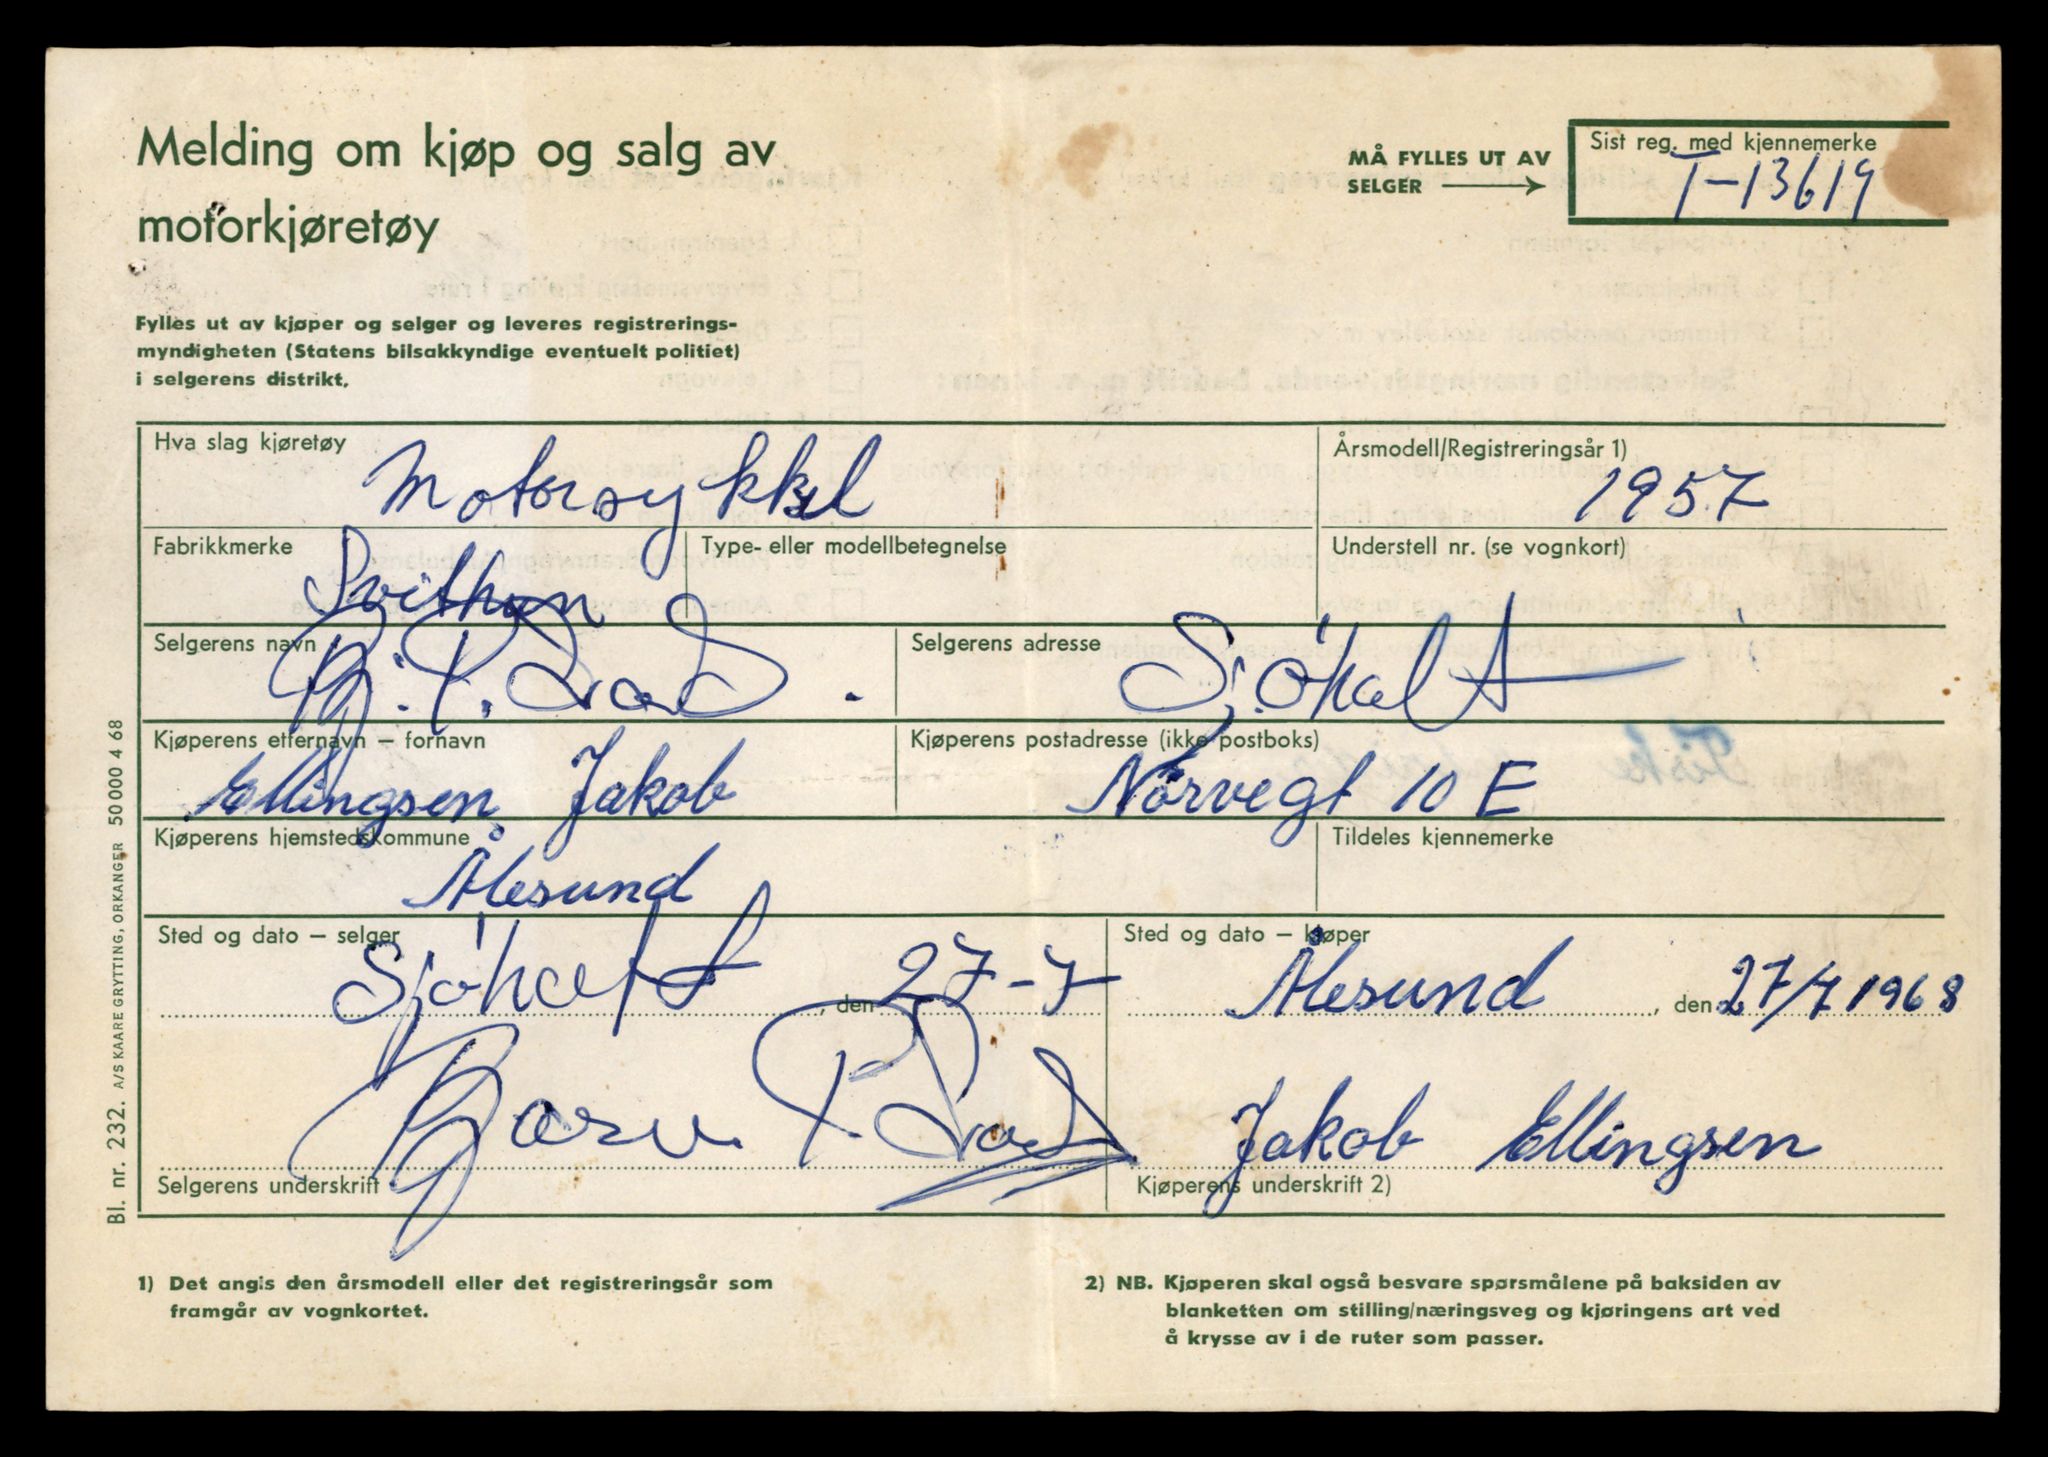 Melding om kjøp og salg av
motorkjøretøy
MÅ FYLLES UT AV
SELGER
Sist reg. med kjennemerke
T-13619
Fylles ut av kjøper og selger og leveres registrerings-
myndigheten (Statens bilsakkyndige eventuelt politiet)
i selgerens distrikt.
Hva slag kjøretøy
Motorsykkel
Årsmodell/Registreringsår 1)
1957
Fabrikkmerke
Svithun
Type- eller modellbetegnelse
Understell nr. (se vognkort)
Selgerens navn
Bj. P.
Selgerens adresse
Sjöholt
Kjøperens etternavn – fornavn
Ellingsen Jakob
Kjøperens postadresse (ikke postboks)
Nørvegt 10 E
Kjøperens hjemstedskommune
Ålesund
Tildeles kjennemerke
Sted og dato – selger
Sjöholt, den 27-7
Sted og dato – kjøper
Ålesund, den 27/7 1968
P.
Jakob Ellingsen
Selgerens underskrift
Kjøperens underskrift 2)
1) Det angis den årsmodell eller det registreringsår som
framgår av vognkortet.
2) NB. Kjøperen skal også besvare spørsmålene på baksiden av
blanketten om stilling/næringsveg og kjøringens art ved
å krysse av i de ruter som passer.
Bl. nr. 232. A/S KAARE GRYTTING, ORKANGER 50 000 4 68